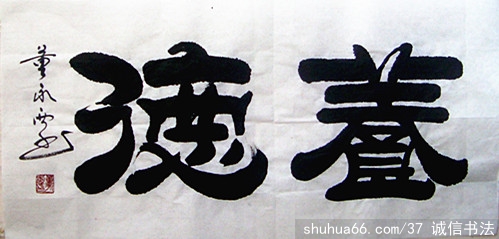 養德
shuhua66.com/37 诚信书法